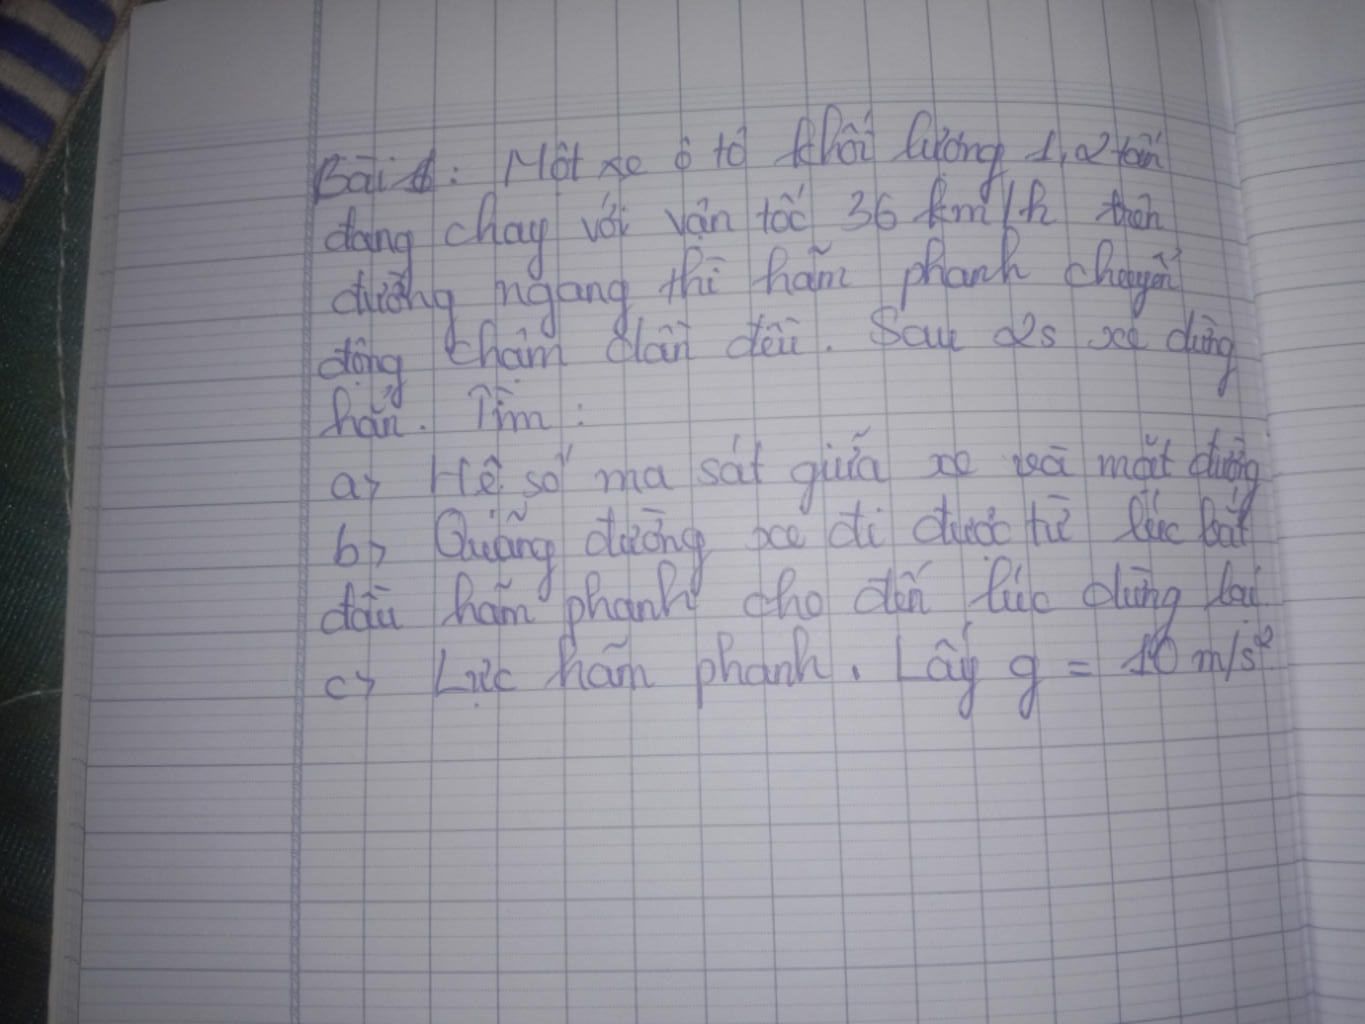 Bài 1: Một xe ô tô khối lượng 1,2 tấn
đang chạy với vận tốc 36 km/h trên
đường ngang thì hãm phanh chuyển
động chậm dần đều. Sau 2s xe dừng
hẳn. Tìm:
a> Hệ số ma sát giữa xe và mặt đường
b> Quãng đường xe đi được từ lúc bắt
đầu hãm phanh cho đến lúc dừng lại
c> Lực hãm phanh. Lấy g = 10 m/s²